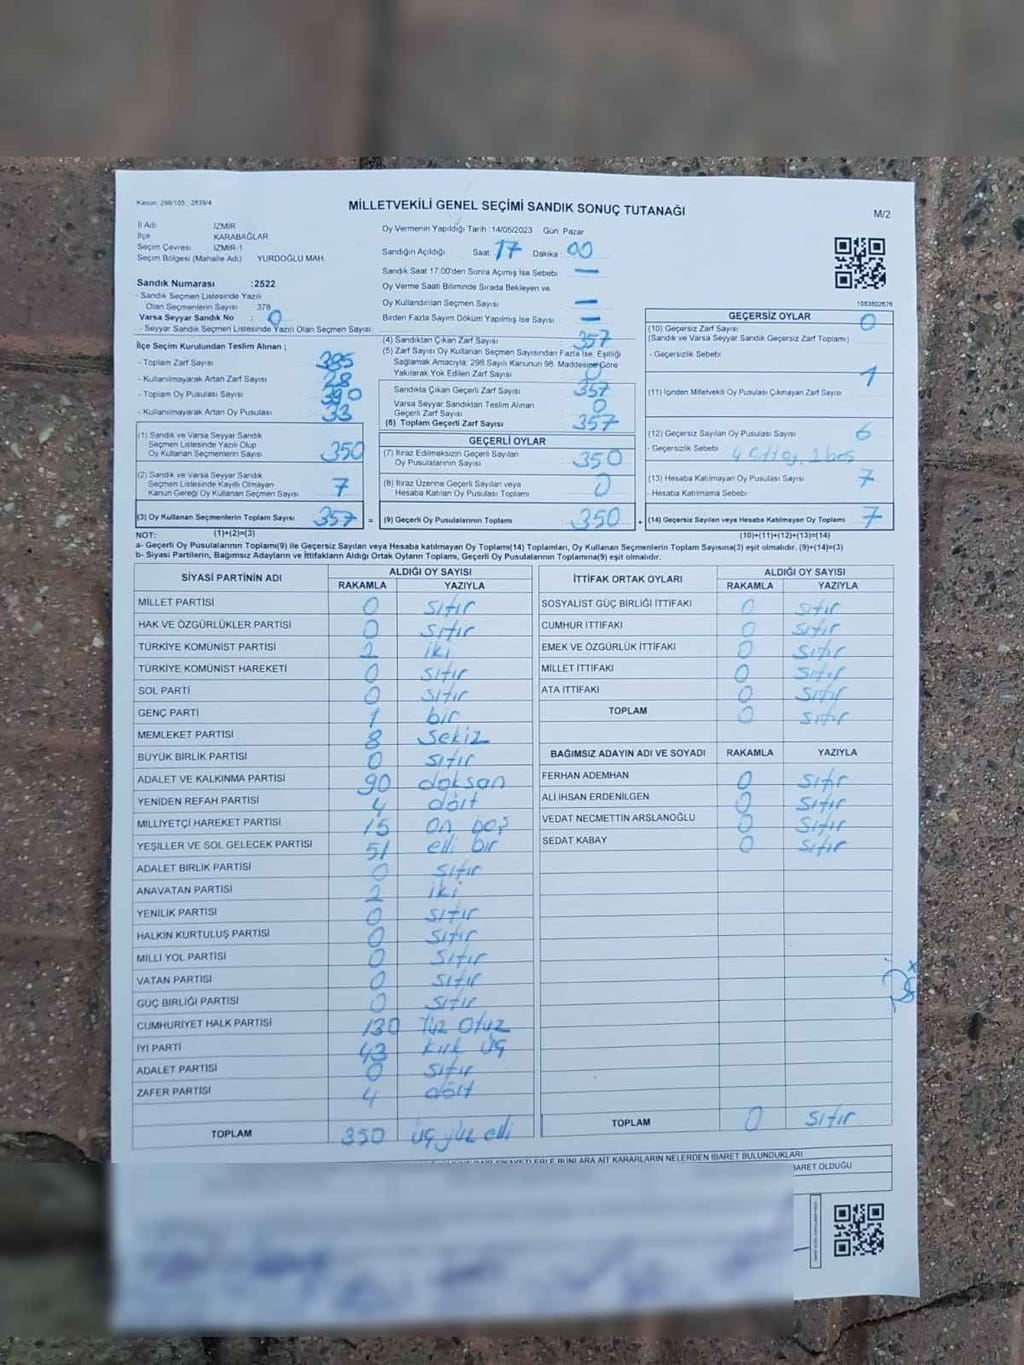 Kanun: 298/105 , 2839/4
MİLLETVEKİLİ GENEL SEÇİMİ SANDIK SONUÇ TUTANAĞI
M/2
İl Adı İZMİR
İlçe KARABAĞLAR
Seçim Çevresi İZMİR-1
Seçim Bölgesi (Mahalle Adı) YURDOĞLU MAH.
Sandık Numarası :2522
- Sandık Seçmen Listesinde Yazılı
Olan Seçmenlerin Sayısı 378
Varsa Seyyar Sandık No : 0
- Seyyar Sandık Seçmen Listesinde Yazılı Olan Seçmen Sayısı:
Oy Vermenin Yapıldığı Tarih :14/05/2023 Gün: Pazar
Sandığın Açıldığı Saat: 17 Dakika : 00
Sandık Saat 17.00'den Sonra Açılmış İse Sebebi : —
Oy Verme Saati Bitiminde Sırada Bekleyen ve
Oy Kullandırılan Seçmen Sayısı : —
Birden Fazla Sayım Döküm Yapılmış İse Sayısı : —
1083802676
İlçe Seçim Kurulundan Teslim Alınan ;
- Toplam Zarf Sayısı : 385
- Kullanılmayarak Artan Zarf Sayısı : 28
- Toplam Oy Pusulası Sayısı : 390
- Kullanılmayarak Artan Oy Pusulası : 33
(1) Sandık ve Varsa Seyyar Sandık
Seçmen Listesinde Yazılı Olup
Oy Kullanan Seçmenlerin Sayısı : 350
(2) Sandık ve Varsa Seyyar Sandık
Seçmen Listesinde Kayıtlı Olmayan
Kanun Gereği Oy Kullanan Seçmen Sayısı : 7
(3) Oy Kullanan Seçmenlerin Toplam Sayısı : 357 =
(1)+(2)=(3)
(4) Sandıktan Çıkan Zarf Sayısı : 357
(5) Zarf Sayısı Oy Kullanan Seçmen Sayısından Fazla İse, Eşitliği
Sağlamak Amacıyla; 298 Sayılı Kanunun 98. Maddesine Göre
Yakılarak Yok Edilen Zarf Sayısı : 0
Sandıkta Çıkan Geçerli Zarf Sayısı : 357
Varsa Seyyar Sandıktan Teslim Alınan
Geçerli Zarf Sayısı : 0
(6) Toplam Geçerli Zarf Sayısı : 357
GEÇERLİ OYLAR
(7) İtiraz Edilmeksizin Geçerli Sayılan
Oy Pusulalarının Sayısı : 350
(8) İtiraz Üzerine Geçerli Sayılan veya
Hesaba Katılan Oy Pusulası Toplamı : 0
(9) Geçerli Oy Pusulalarının Toplamı : 350 +
GEÇERSİZ OYLAR
(10) Geçersiz Zarf Sayısı : 0
(Sandık ve Varsa Seyyar Sandık Geçersiz Zarf Toplamı)
- Geçersizlik Sebebi :
(11) İçinden Milletvekili Oy Pusulası Çıkmayan Zarf Sayısı : 1
(12) Geçersiz Sayılan Oy Pusulası Sayısı : 6
- Geçersizlik Sebebi : 2 boş
(13) Hesaba Katılmayan Oy Pusulası Sayısı : 7
- Hesaba Katılmama Sebebi :
(14) Geçersiz Sayılan veya Hesaba Katılmayan Oy Toplamı : 7
(10)+(11)+(12)+(13)=(14)
NOT:
a- Geçerli Oy Pusulalarının Toplamı(9) ile Geçersiz Sayılan veya Hesaba katılmayan Oy Toplamı(14) Toplamları, Oy Kullanan Seçmenlerin Toplam Sayısına(3) eşit olmalıdır. (9)+(14)=(3)
b- Siyasi Partilerin, Bağımsız Adayların ve İttifakların Aldığı Ortak Oyların Toplamı, Geçerli Oy Pusulalarının Toplamına(9) eşit olmalıdır.
SİYASİ PARTİNİN ADI ALDIĞI OY SAYISI
RAKAMLA YAZIYLA
MİLLET PARTİSİ 0 sıfır
HAK VE ÖZGÜRLÜKLER PARTİSİ 0 sıfır
TÜRKİYE KOMÜNİST PARTİSİ 2 iki
TÜRKİYE KOMÜNİST HAREKETİ 0 sıfır
SOL PARTİ 0 sıfır
GENÇ PARTİ 1 bir
MEMLEKET PARTİSİ 8 sekiz
BÜYÜK BİRLİK PARTİSİ 0 sıfır
ADALET VE KALKINMA PARTİSİ 90 doksan
YENİDEN REFAH PARTİSİ 4 dört
MİLLİYETÇİ HAREKET PARTİSİ 15 on beş
YEŞİLLER VE SOL GELECEK PARTİSİ 51 elli bir
ADALET BİRLİK PARTİSİ 0 sıfır
ANAVATAN PARTİSİ 2 iki
YENİLİK PARTİSİ 0 sıfır
HALKIN KURTULUŞ PARTİSİ 0 sıfır
MİLLİ YOL PARTİSİ 0 sıfır
VATAN PARTİSİ 0 sıfır
GÜÇ BİRLİĞİ PARTİSİ 0 sıfır
CUMHURİYET HALK PARTİSİ 130 Yüz Otuz
İYİ PARTİ 43 kırk üç
ADALET PARTİSİ 0 sıfır
ZAFER PARTİSİ 4 dört
TOPLAM 350 üç yüz elli
İTTİFAK ORTAK OYLARI ALDIĞI OY SAYISI
RAKAMLA YAZIYLA
SOSYALİST GÜÇ BİRLİĞİ İTTİFAKI 0 sıfır
CUMHUR İTTİFAKI 0 sıfır
EMEK VE ÖZGÜRLÜK İTTİFAKI 0 sıfır
MİLLET İTTİFAKI 0 sıfır
ATA İTTİFAKI 0 sıfır
TOPLAM 0 sıfır
BAĞIMSIZ ADAYIN ADI VE SOYADI RAKAMLA YAZIYLA
FERHAN ADEMHAN 0 sıfır
ALİ İHSAN ERDENİLGEN 0 sıfır
VEDAT NECMETTİN ARSLANOĞLU 0 sıfır
SEDAT KABAY 0 sıfır
TOPLAM 0 sıfır
ŞİKAYETLERLE BUNLARA AİT KARARLARIN NELERDEN İBARET BULUNDUKLARI
İBARET OLDUĞU